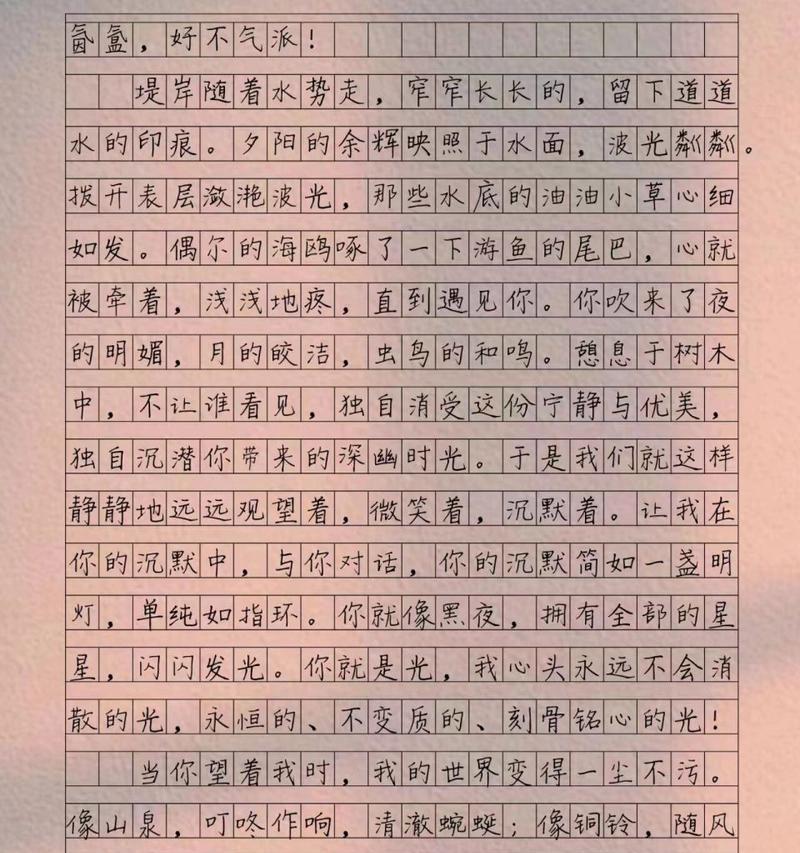 氤氲，好不气派！
堤岸随着水势走，窄窄长长的，留下道道
水的印痕。夕阳的余辉映照于水面，波光粼粼。
拨开表层潋滟波光，那些水底的油油小草心细
如发。偶尔的海鸥啄了一下游鱼的尾巴，心就
被牵着，浅浅地疼，直到遇见你。你吹来了夜
的明媚，月的皎洁，虫鸟的和鸣。憩息于树木
中，不让谁看见，独自消受这份宁静与优美，
独自沉潜你带来的深幽时光。于是我们就这样
静静地远远观望着，微笑着，沉默着。让我在
你的沉默中，与你对话，你的沉默简如一盏明
灯，单纯如指环。你就像黑夜，拥有全部的星
星，闪闪发光。你就是光，我心头永远不会消
散的光，永恒的、不变质的、刻骨铭心的光！
当你望着我时，我的世界变得一尘不污。
像山泉，叮咚作响，清澈蜿蜒；像铜铃，随风